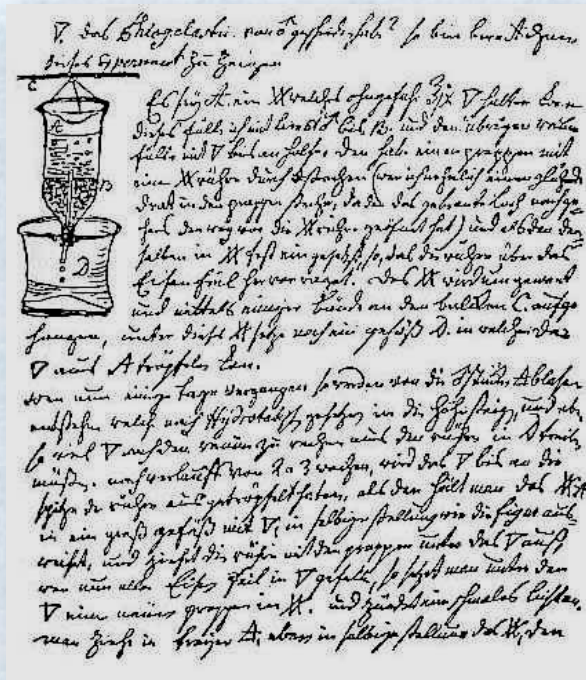 ▽. das von ♂ geschieden hat? so bin bereit Ihnen
dieses Experiment zu zeigen
C
A
B
D
Es sey A. ein welches ohngefehr ▽ halten kan
dieses fülle ich mit ♂ bis B. und den übrigen raum
fülle mit ▽ bis an halse. den habe einen proppen mit
eine röhre durch stechen (wen ich nehmlich einen glühenden
drat in den proppen steche, da den das gebrante loch nachge
hens den weg vor die röhre geöfnet hat) und als den den
selben in fest eingesetzt, so, das die röhre über das
Eisen feil hervor raget. Das wird umgewent
und mittels einiger bände an den balcken C. aufge
hangen, unter dieses setze noch ein gefäß D. in welches das
▽ aus A tröpfeln kan.
wen nun einige tage vergangen so werden von die
entstehn welche nach gesetzen in die höhe steigen, und eb.
so viel ▽ nach den raum zu rechen aus den röhre in D treiben
müßen. nach verlauft von 2 a 3 wochen, wird das ▽ bis an die
spitze der röhre aus getröpfelt haben, als den hält man das
in ein groß gefäß mit ▽, in selbige stellung wie die figur aus
weißt, und zieht die röhre mit den proppen unter das ▽ aus,
wen nun alles Eisen feil in ▽ gefalen, so setzt man unter den
▽ eine neuen proppen in und zündet ein schmales licht an,
man zieht in eben in selbige stellung das den